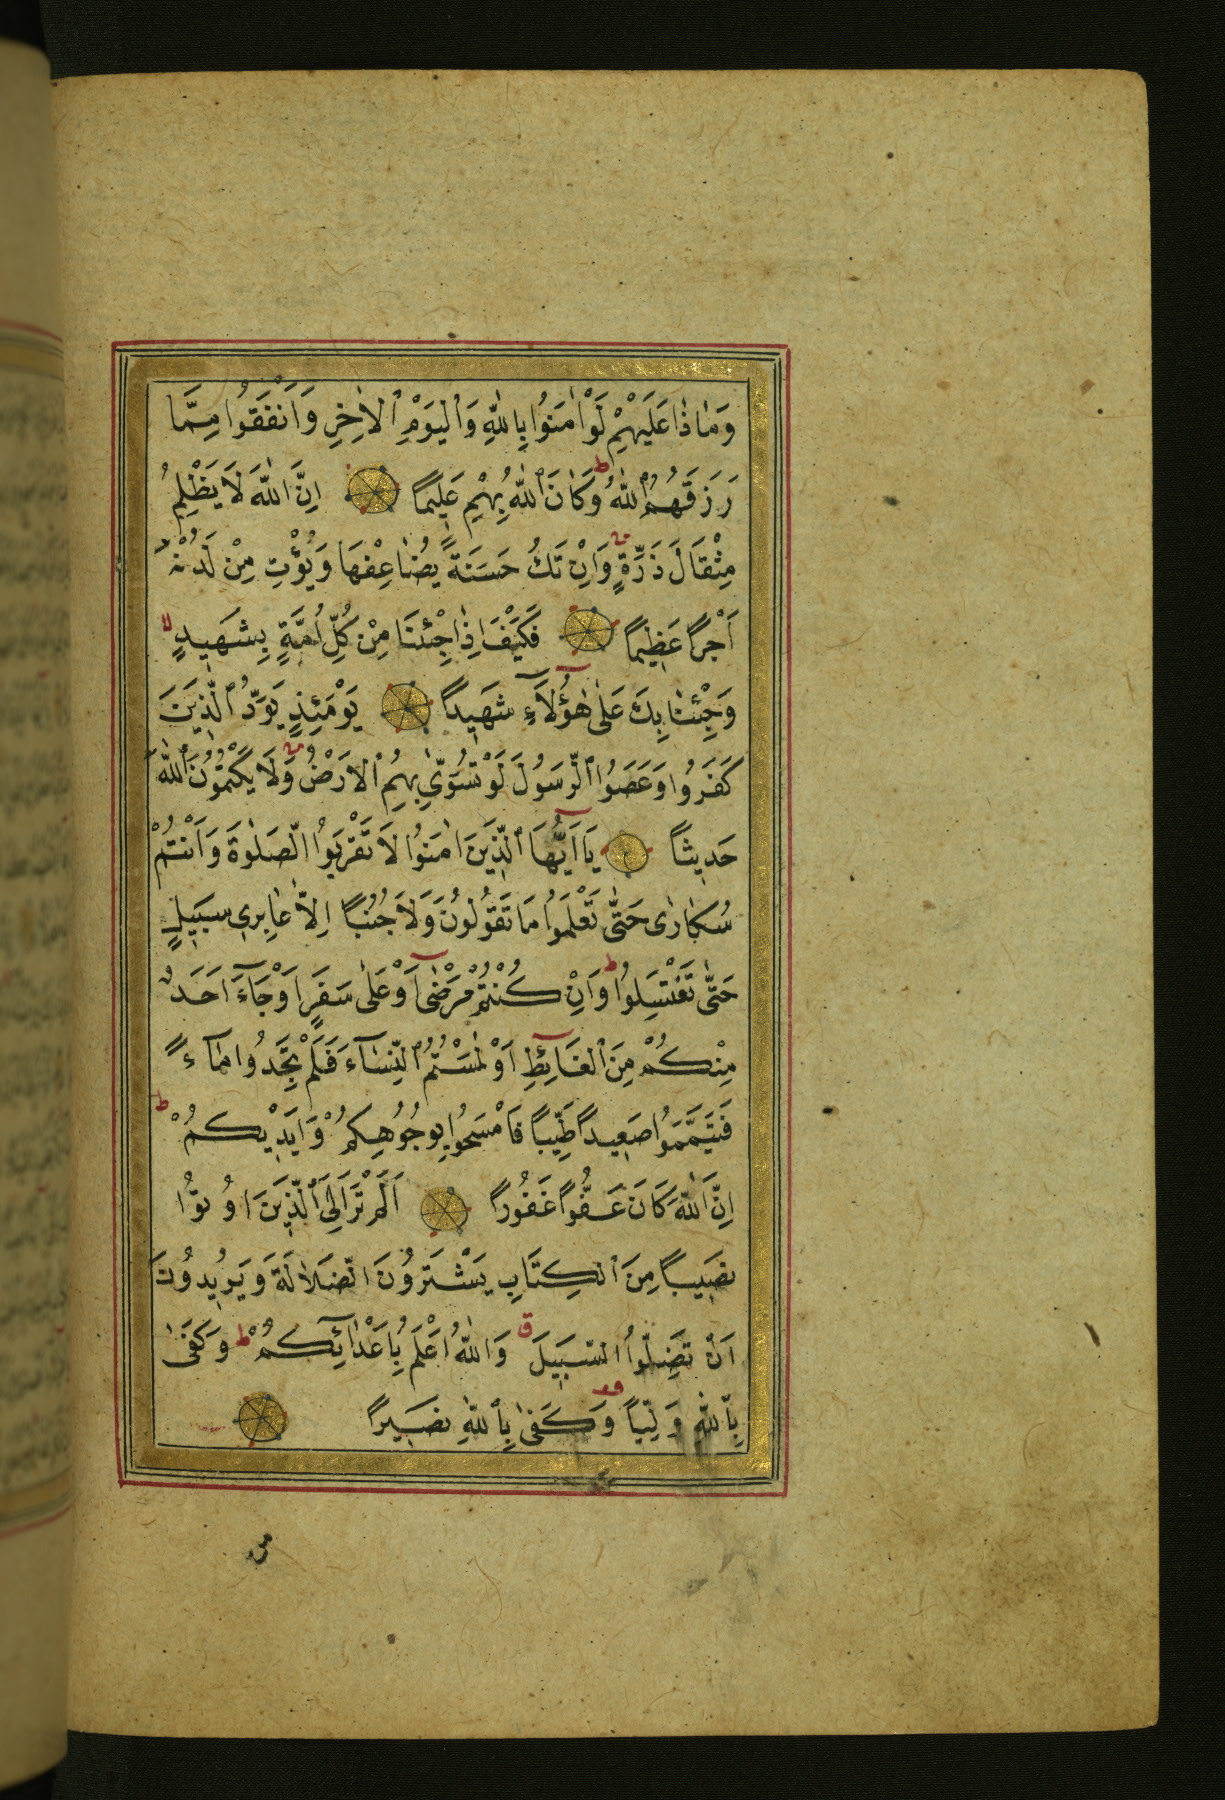 وَمَاذَا عَلَيْهِمْ لَوْ اٰمَنُوا بِاللّٰهِ وَالْيَوْمِ الْاٰخِرِ وَاَنْفَقُوا مِمَّا
رَزَقَهُمُ اللّٰهُ ط وَكَانَ اللّٰهُ بِهِمْ عَلِيمًا اِنَّ اللّٰهَ لَا يَظْلِمُ
مِثْقَالَ ذَرَّةٍ وَاِنْ تَكُ حَسَنَةً يُضَاعِفْهَا وَيُؤْتِ مِنْ لَدُنْهُ
اَجْرًا عَظِيمًا فَكَيْفَ اِذَا جِئْنَا مِنْ كُلِّ اُمَّةٍ بِشَهِيدٍ لا
وَجِئْنَا بِكَ عَلٰى هٰؤُلَاءِ شَهِيدًا يَوْمَئِذٍ يَوَدُّ الَّذِينَ
كَفَرُوا وَعَصَوُا الرَّسُولَ لَوْ تُسَوّٰى بِهِمُ الْاَرْضُ وَلَا يَكْتُمُونَ اللّٰهَ
حَدِيثًا يَا اَيُّهَا الَّذِينَ اٰمَنُوا لَا تَقْرَبُوا الصَّلٰوةَ وَاَنْتُمْ
سُكَارٰى حَتّٰى تَعْلَمُوا مَا تَقُولُونَ وَلَا جُنُبًا اِلَّا عَابِرِي سَبِيلٍ
حَتّٰى تَغْتَسِلُوا ط وَاِنْ كُنْتُمْ مَرْضٰى اَوْ عَلٰى سَفَرٍ اَوْ جَاءَ اَحَدٌ
مِنْكُمْ مِنَ الْغَائِطِ اَوْ لٰمَسْتُمُ النِّسَاءَ فَلَمْ تَجِدُوا مَاءً
فَتَيَمَّمُوا صَعِيدًا طَيِّبًا فَامْسَحُوا بِوُجُوهِكُمْ وَاَيْدِيكُمْ ط
اِنَّ اللّٰهَ كَانَ عَفُوًّا غَفُورًا اَلَمْ تَرَ اِلَى الَّذِينَ اُوتُوا
نَصِيبًا مِنَ الْكِتَابِ يَشْتَرُونَ الضَّلَالَةَ وَيُرِيدُونَ
اَنْ تَضِلُّوا السَّبِيلَ ق وَاللّٰهُ اَعْلَمُ بِاَعْدَائِكُمْ ط وَكَفٰى
بِاللّٰهِ وَلِيًّا وَكَفٰى بِاللّٰهِ نَصِيرًا
من